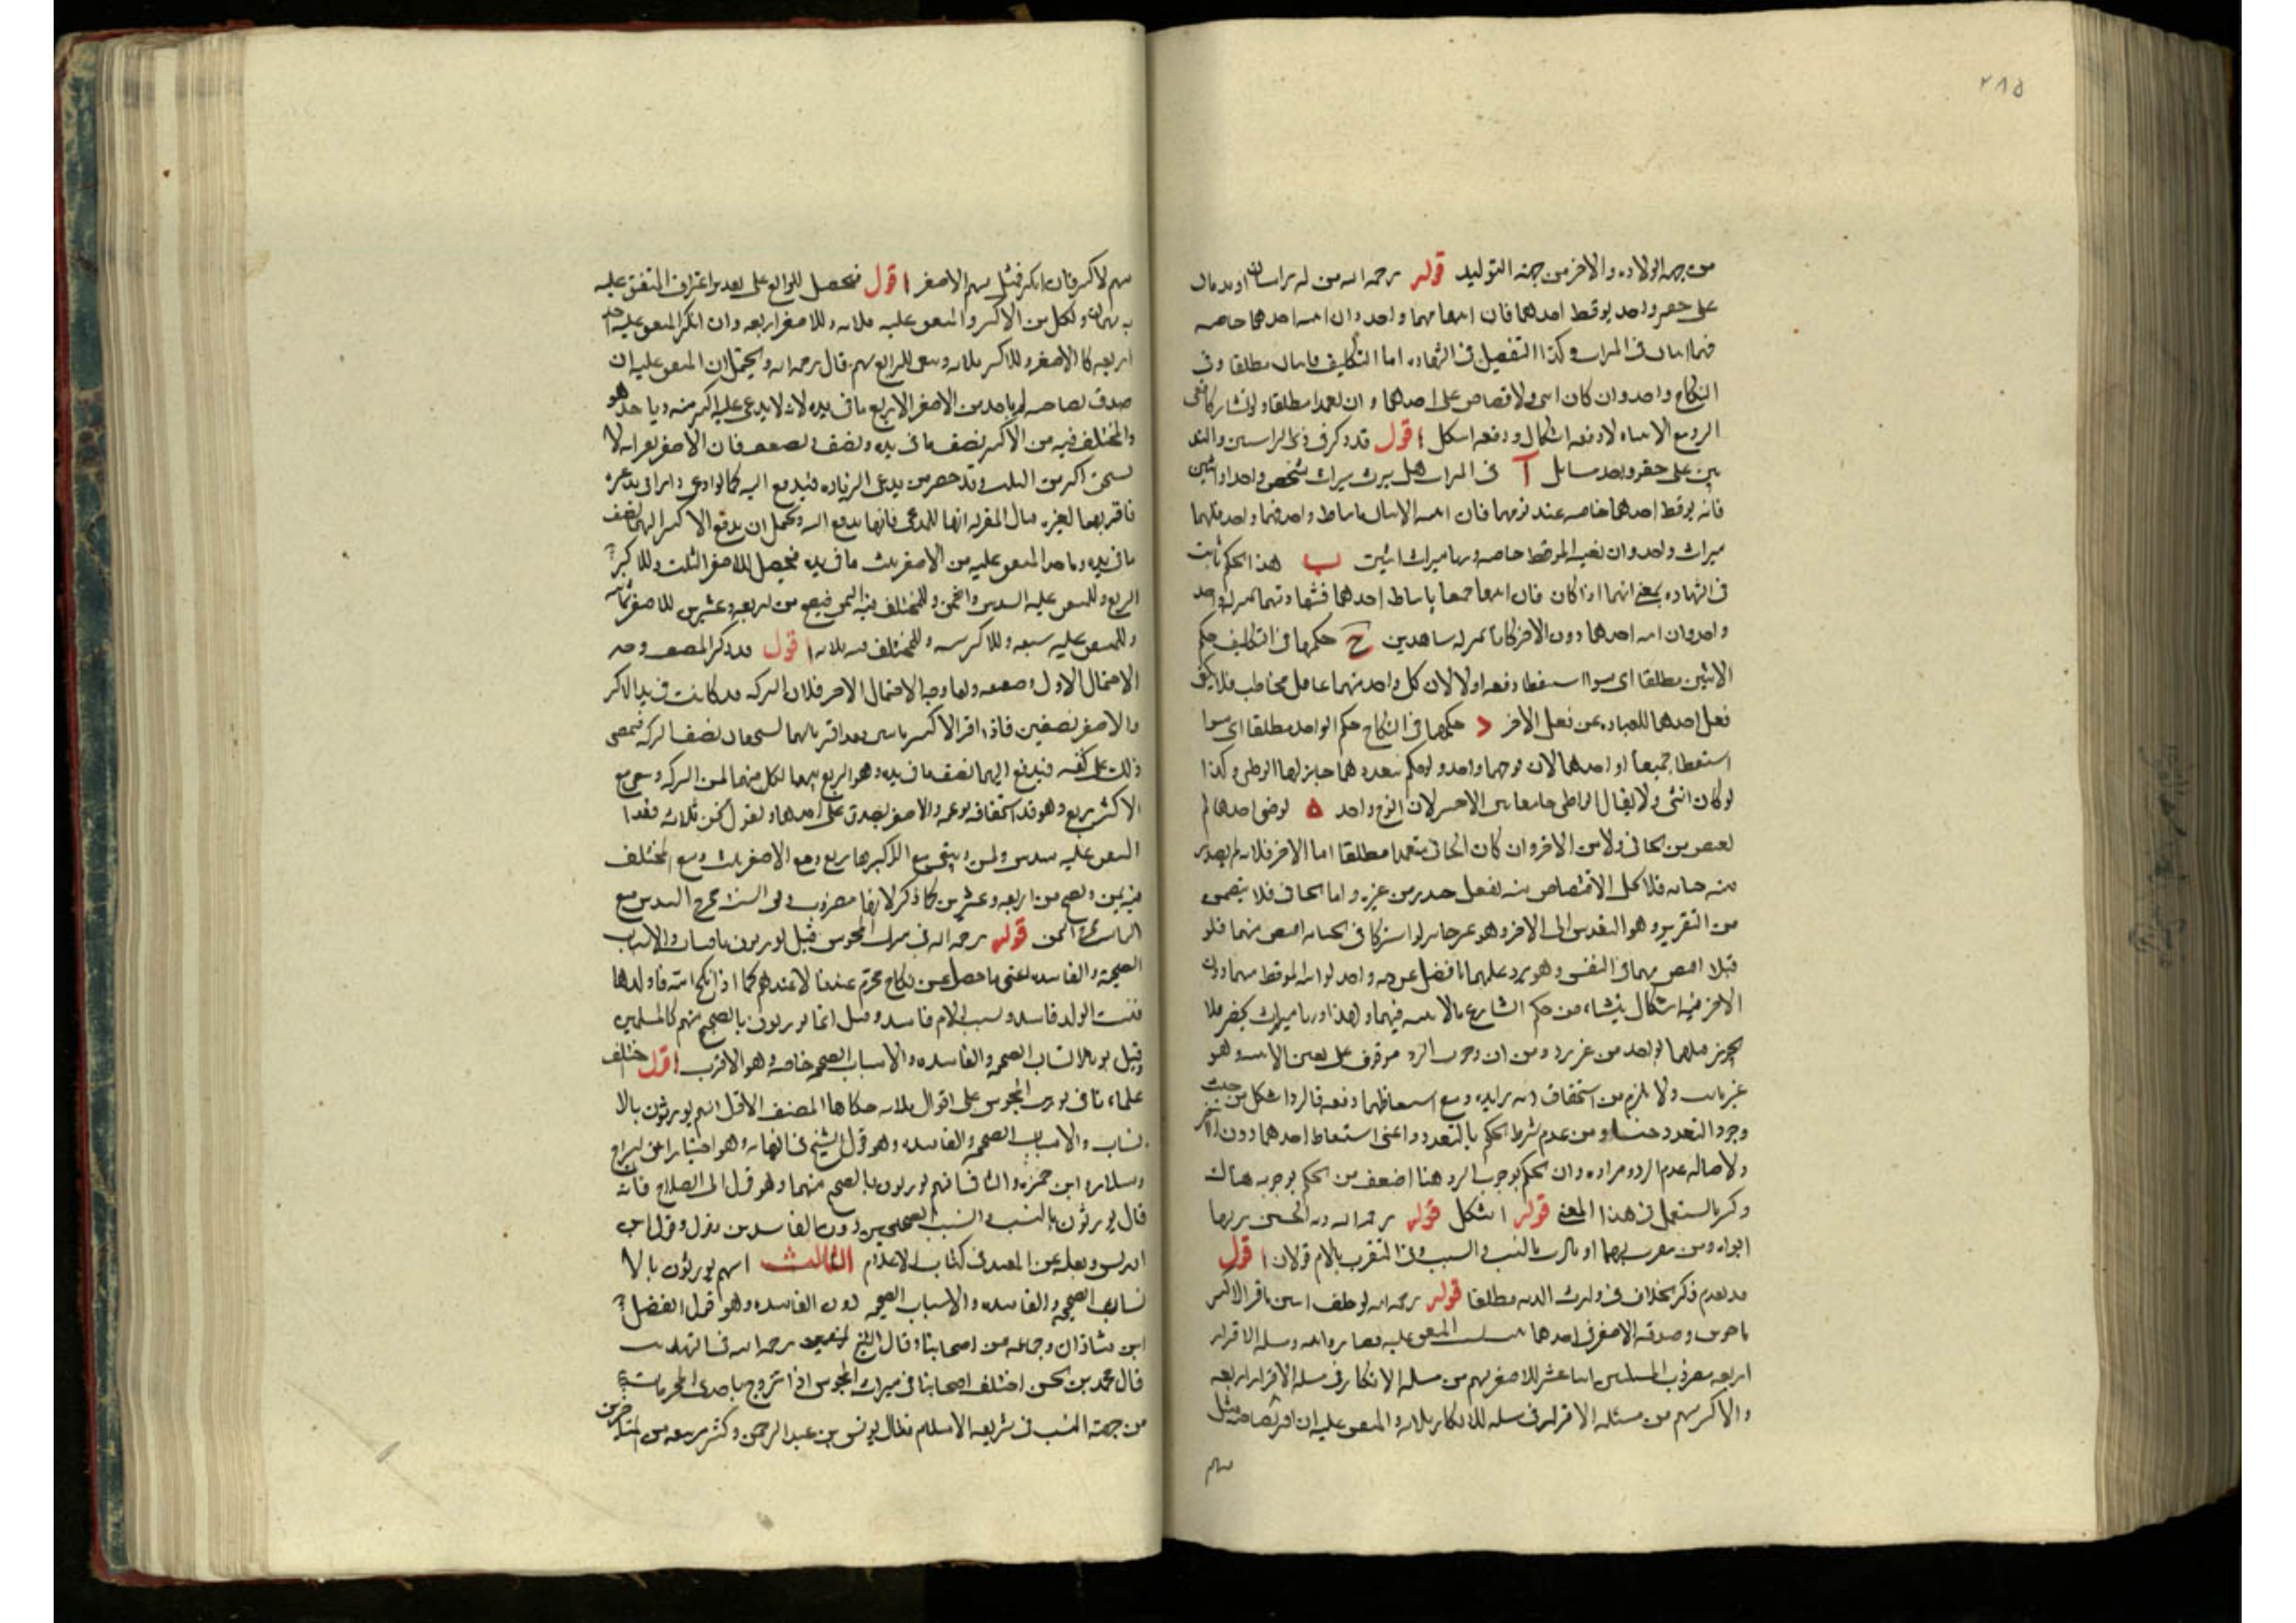 ٢٨٥
من جهه الولاده والاخر من جهه التوليد قوله رحمه الله من له راسان او بدنان
على حقو واحد يوقظ احدهما فان انتبها فهما واحد وان انتبه احدهما خاصه
فهما اثنان فى الميراث وكذا التفصيل فى الشهاده اما التكليف فاثنان مطلقا وفى
النكاح واحد وان كان انثى ولا قصاص على احدهما وان تعمد مطلقا ولو تشاركا ففى
الرد مع الانتباه لا دفعه اشكال ودفعه اشكل اقول قد ذكر فى ذى الراسين والبد
نين على حقو واحد مسايل آ فى الميراث هل يرث ميراث شخص واحد او اثنين
فانه يوقظ احدهما خاصه عند نومهما فان انتبه الاثنان بايقاظ واحد فهما واحد فلهما
ميراث واحد وان نفيه الموقظ خاصه ورثا ميراث اثنين ب هذا الحكم ثابت
فى الشهاده بمعنى انهما اذا كان فان انتبها جميعا بايقاظ احدهما فشهادتهما كمراه واحد
واحد وان انتبه احدهما دون الاخر كانا بمنزله شاهدين ح حكمهما فى التكليف حكم
الاثنين مطلقا اى سوا استيقظا دفعه او لا لان كل واحد منهما عاقل مخاطب فلا يكفى
فعل احدهما للعباده عن فعل الاخر د حكمهما فى النكاح حكم الواحد مطلقا اى سوا
استيقظا جميعا او احدهما لان فرجهما واحد ولو حكم بتعددهما جاز لهما الوطى وكذا
لو كان انثى ولا يقال الواطى جامع بين الاختين لان الزوج واحد ه لو جنى احدهما لم
يقتص من الجانى ولا من الاخر وان كان الجانى متعمدا مطلقا اما الاخر فلانه لم يصدر
منه جنايه فلا يحل الاقتصاص منه بفعل صدر من غيره واما الجانى فلا يتضمن
من التغرير وهو التعدى الى الاخر وهو غير جايز لو اشتركا فى الجنايه اقتص منهما فلو
قتلا اقتص منهما فى النفس وهل يرد عليهما ما فضل عن ديه واحد لو انتبه الموقظ منهما دون
الاخر فيه اشكال ينشاء من حكم الشارع بالاثنينيه فيهما ولهذا ورثا ميراث شخصين فلا
يجوز قتلهما بواحد من غير رد ومن ان وجوب الرد موقوف على يقين الاثنينيه وهو
غير ثابت ولا يلزم من استحقاق ارث زايد ومع استيقاظهما دفعه فالرد اشكل من حيث
وجود التعدد حسا ومن عدم شرط الحكم بالتعدد واعنى استيقاظ احدهما دون الاخر
ولاصاله عدم الرد ومراده وان الحكم بوجوب الرد هنا اضعف من الحكم بوجوبه هناك
وكثر ما يستعمل فى هذا المعنى قوله اشكل قوله رحمه الله ديه الجنين يرثها
ابواه ومن يتقرب بهما او بالاب بالنسب والسبب وفى المتقرب بالام قولان اقول
قد تقدم ذكر الخلاف فى وارث الديه مطلقا قوله رحمه الله لو خلف ابنين فاقر الاكبر
باخوين وصدقه الاصغر فى احدهما ثبت نسب المتفق عليه فصاروا ثلثه ومسئله الاقرار
اربعه مضروب المسئلتين اثنا عشر للاصغر سهم من مسئله الانكار فى مسئله الاقرار اربعه
والاكبر سهم من مسئله الاقرار فى مسئله الانكار ثلاثه والمتفق عليه ان اقر بصاحبه مثل
سهم
سهم الاكبر فان انكر فمثل سهم الاصغر اقول فيحصل للرابع على تقدير اعتراف المتفق عليه
به سهمان ولكل من الاكبر والمتفق عليه ثلاثه وللاصغر اربعه وان انكر المتفق عليه اخذ
اربعه كالاصغر وللاكبر ثلاثه وبقى للرابع سهم قال رحمه الله ويحتمل ان المتفق عليه ان
صدق بصاحبه لم ياخذ من الاصغر الا ربع ما فى يده لانه لا يدعى عليه اكثر منه وياخذ هو
والمختلف فيه من الاكبر نصف ما فى يده ونصف ويضعف فان الاصغر يقر انه لا
يستحق اكثر من الثلث وقد حضر من يدعى الزياده فيدفع اليه كما لو ادعى دارا فى يد غيره
فاقر بها لغيره فقال المقر له انها للمدعى فانها تدفع اليه ويحتمل ان يدفع الاكبر اليهما نصف
ما فى يده وياخذ المتفق عليه من الاصغر ثلث ما فى يده فيحصل للاصغر الثلث وللاكبر
الربع وللمتفق عليه السدس والثمن وللمختلف فيه الثمن فيصح من اربعه وعشرين للاصغر ثمانيه
وللمتفق عليه سبعه وللاكبر سته وللمختلف فيه ثلاثه اقول قد ذكر المصنف وجه
الاحتمال الاول وضعفه واما وجه الاحتمال الاخر فلان التركه قد كانت فى يد الاكبر
والاصغر نصفين فاذا اقر الاكبر باثنين فقد اقر بانهما يستحقان نصف التركه فيمضى
ذلك على نفسه فيدفع اليهما نصف ما فى يده وهو الربع بينهما لكل منهما ثمن التركه ويبقى مع
الاكبر ربع وهو قدر استحقاقه بزعمه والاصغر يصدق على احدهما ويقول نحن ثلاثه فقد اخذ
المتفق عليه سدس وثمن ويبقى مع الاكبر ربع ومع الاصغر ثلث ومع المختلف
فيه ثمن وتصح من اربعه وعشرين كما ذكر لانها مضروب وفق الست مخرج السدس مع
الثمانيه مخرج الثمن قوله رحمه الله فى ميراث المجوس قيل يورثون بالانساب والاسباب
الصحيحه والفاسده اعنى ما حصل عن نكاح محرم عندنا لا عندهم كما اذا نكح امه فاولدها
فنسب الولد فاسد وسبب الام فاسد وقيل انما يورثون بالصحيح منهم كالمسلمين
وقيل يورثون بالانساب الصحيحه والفاسده والاسباب الصحيحه خاصه وهو الاقرب اقول اختلف
علماءنا فى توريث المجوس على اقوال ثلاثه حكاها المصنف الاول انهم يورثون بالا
نساب والاسباب الصحيحه والفاسده وهو قول الشيخ فى النهايه وهو اختيار ابن البراج
وسلار وابن حمزه والثانى انهم يورثون بالصحيح منهما وهو قول ابى الصلاح فانه
قال يورثون بالنسب والسبب الصحيحين دون الفاسدين ونقل وقول ابن
ادريس ونقله عن المفيد فى كتاب الاعلام الثالث انهم يورثون بالا
نساب الصحيحه والفاسده والاسباب الصحيحه دون الفاسده وهو قول الفضل
ابن شاذان وجماعه من اصحابنا وقال الشيخ رحمه الله فى التهذيب
قال محمد بن الحسن اختلف اصحابنا فى ميراث المجوس اذا تزوج باحدى المحرمات
من جهة النسب فى شريعه الاسلام فقال يونس بن عبد الرحمن وكثير ممن تبعه من المتاخرين